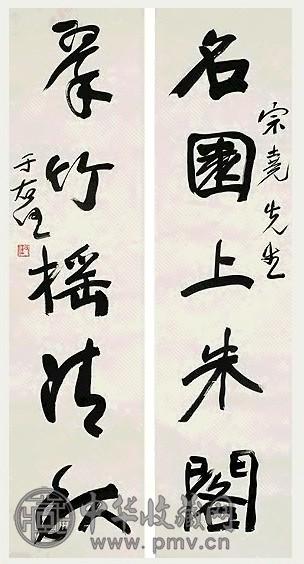 名園上朱閣
宗堯先生
翠竹搖清秋
于右任
中华收藏网
www.pmv.cn